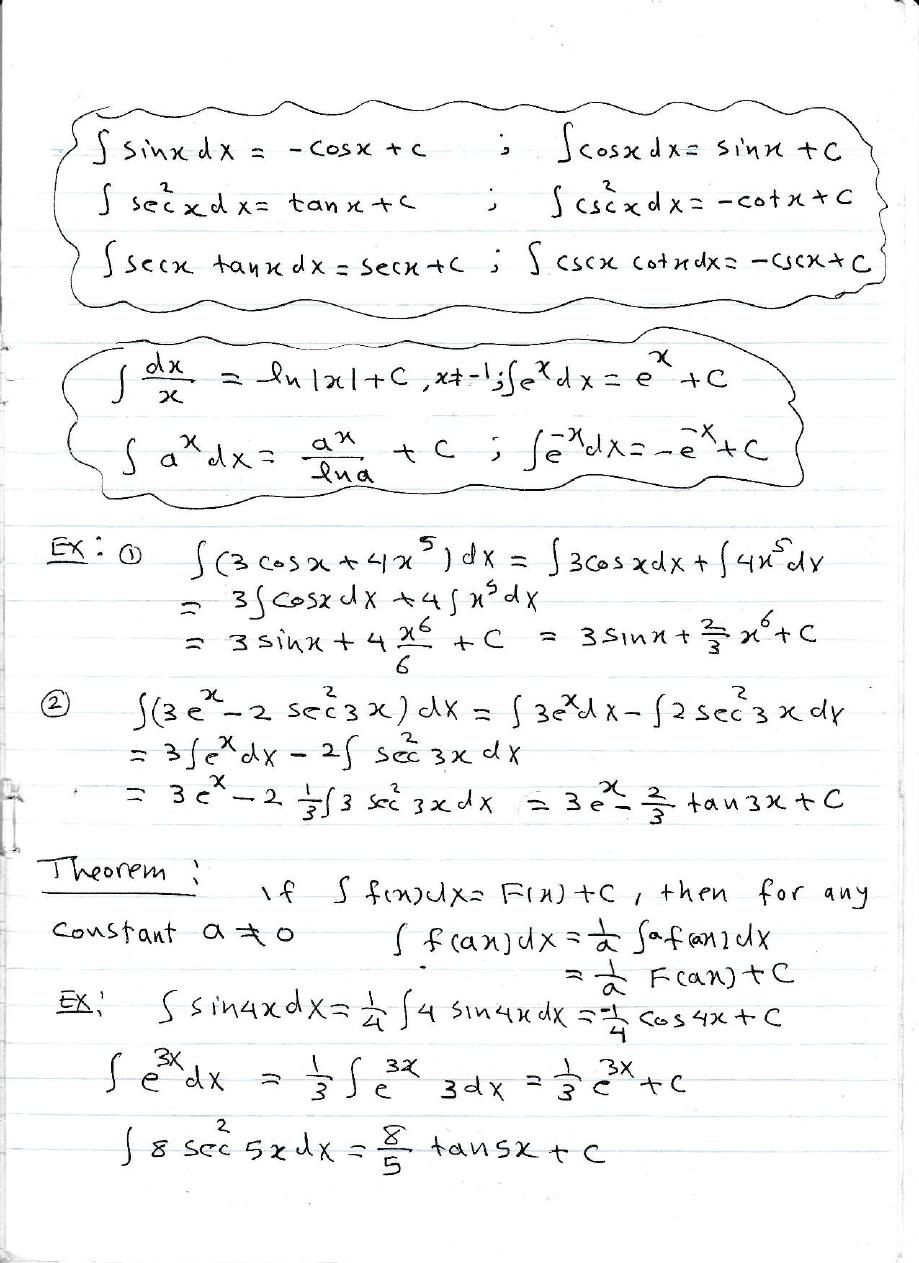 ∫ sinx dx = -cosx + c ; ∫ cosx dx = sinx + C
∫ sec²x dx = tanx + c ; ∫ csc²x dx = -cotx + C
∫ secx tanx dx = secx + c ; ∫ cscx cotx dx = -cscx + C
∫ dx/x = ln|x| + C , x ≠ -1 ; ∫ eˣ dx = eˣ + C
∫ aˣ dx = aˣ/lna + C ; ∫ e⁻ˣ dx = -e⁻ˣ + C
EX: ① ∫ (3 cosx + 4x⁵) dx = ∫ 3cosx dx + ∫ 4x⁵ dx
= 3 ∫ cosx dx + 4 ∫ x⁵ dx
= 3 sinx + 4 x⁶/6 + C = 3 sinx + 2/3 x⁶ + C
② ∫ (3eˣ - 2 sec²3x) dx = ∫ 3eˣ dx - ∫ 2 sec²3x dx
= 3 ∫ eˣ dx - 2 ∫ sec²3x dx
= 3eˣ - 2 1/3 ∫ 3 sec²3x dx = 3eˣ - 2/3 tan3x + C
Theorem : if ∫ f(x) dx = F(x) + C , then for any
constant a ≠ 0 ∫ f(ax) dx = 1/a ∫ a f(ax) dx
= 1/a F(ax) + C
EX: ∫ sin4x dx = 1/4 ∫ 4 sin4x dx = -1/4 cos4x + C
∫ e³ˣ dx = 1/3 ∫ e³ˣ 3dx = 1/3 e³ˣ + C
∫ 8 sec²5x dx = 8/5 tan5x + C